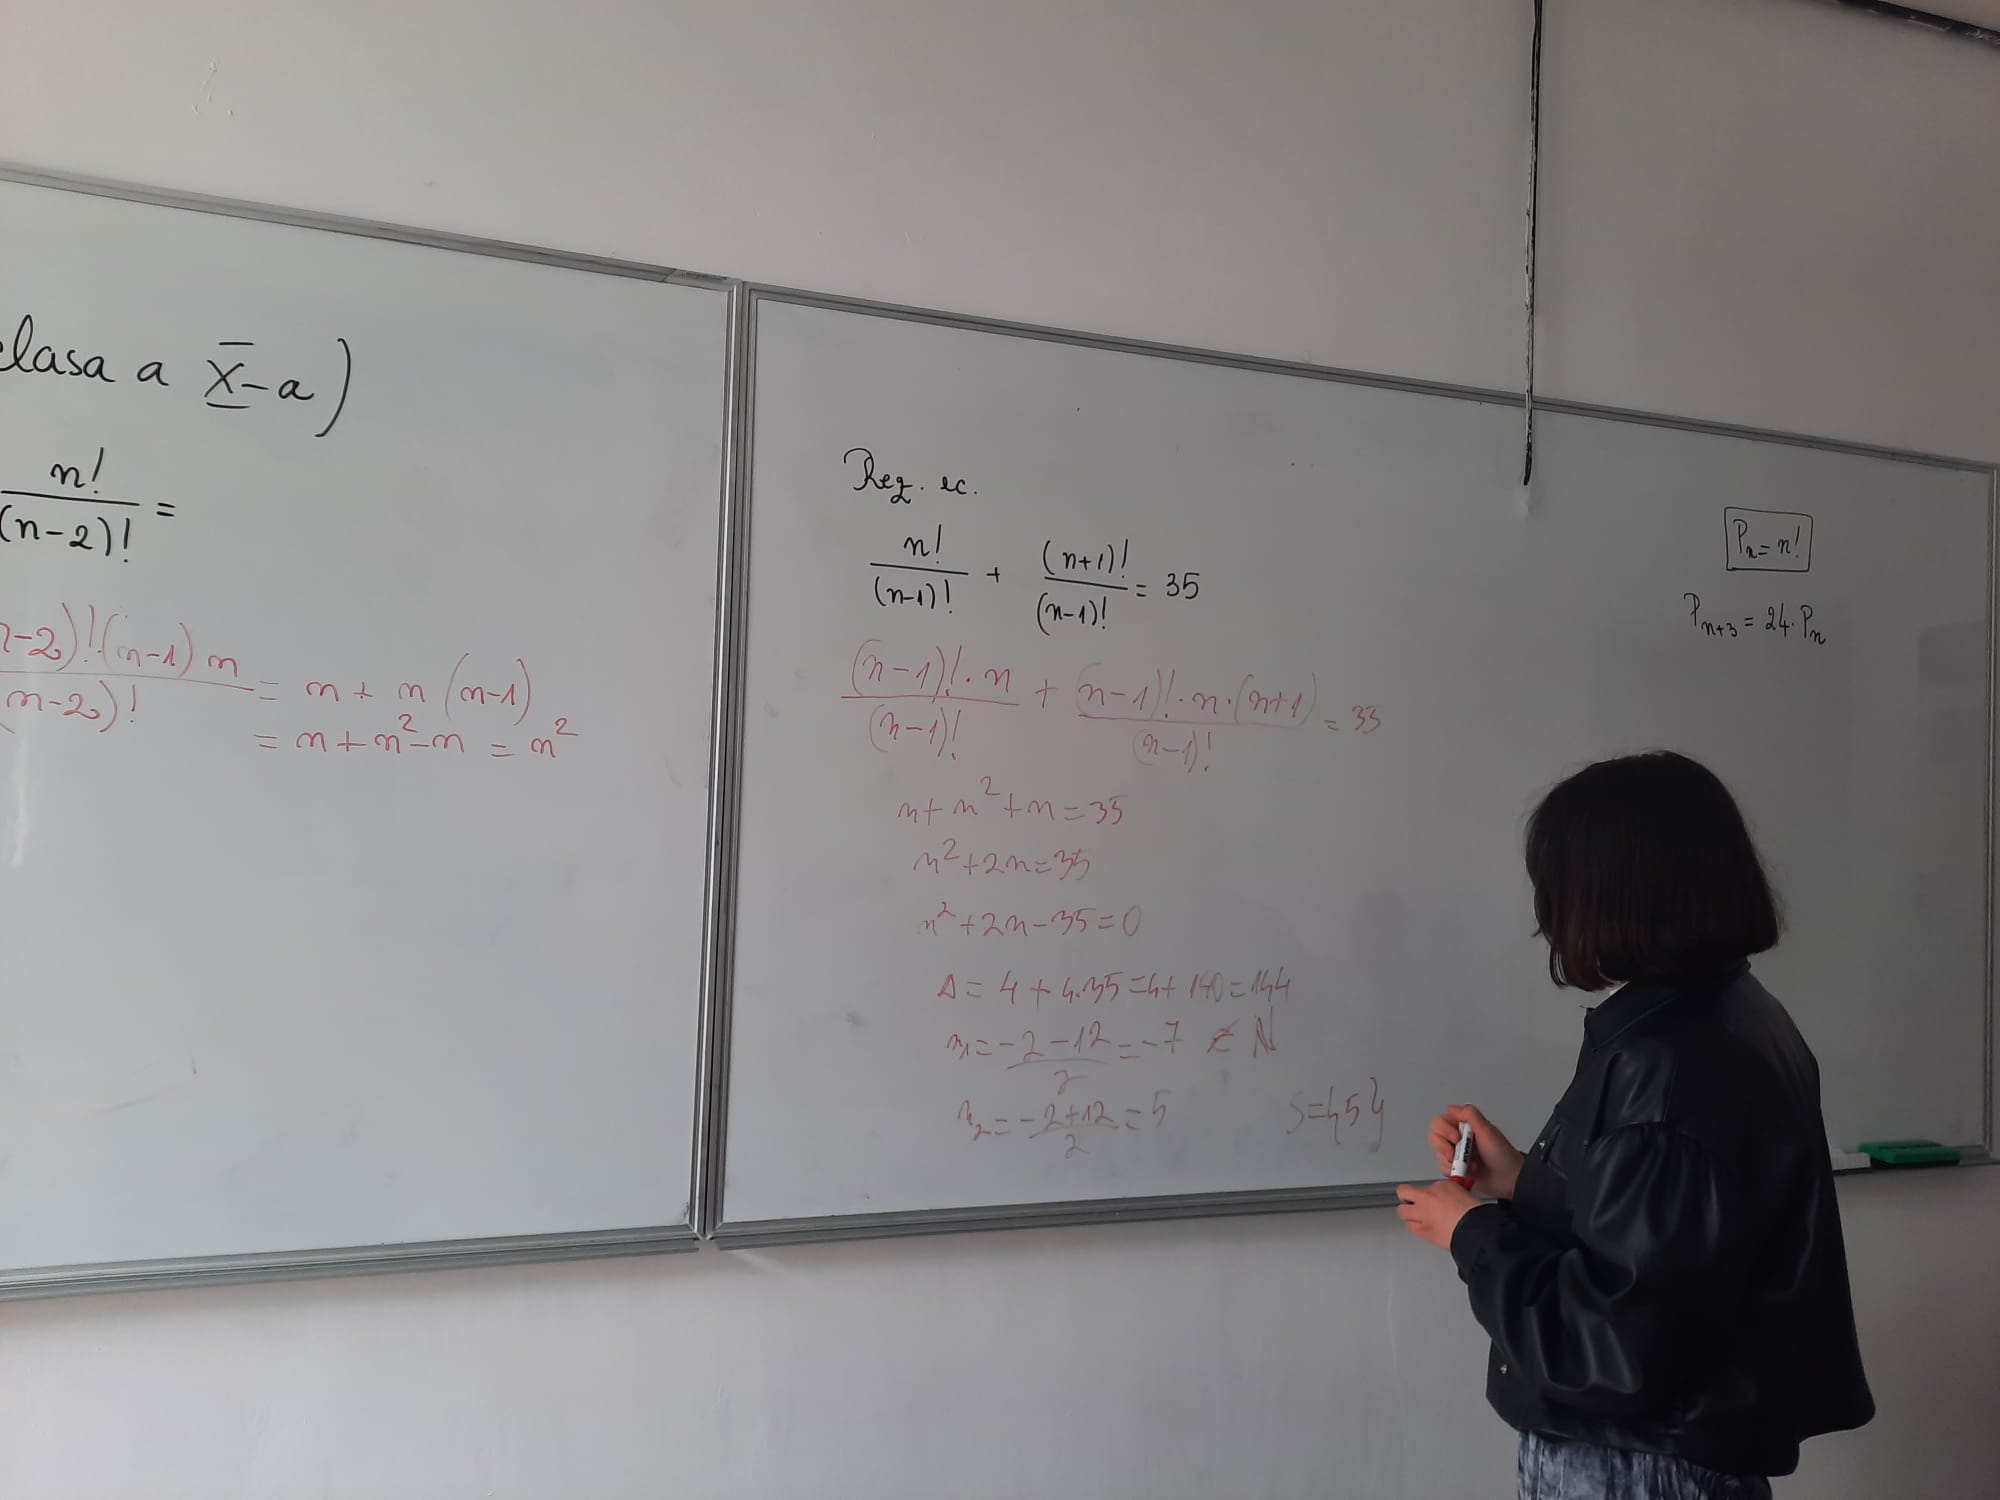 clasa a X-a)
n!/(n-2)! =
n-2)!(n-1)n/(n-2)! = n + n(n-1)
= n+n²-n = n²
Rez. ec.
n!/(n-1)! + (n+1)!/(n-1)! = 35
(n-1)!·n/(n-1)! + (n-1)!·n·(n+1)/(n-1)! = 35
n+n²+n=35
n²+2n=35
n²+2n-35=0
Δ= 4 + 4·35=4+ 140=144
n₁= -2-12/2 = -7 ∉ N
n₂= -2+12/2 = 5
S={5}
Pₙ= n!
Pₙ₊₃ = 24·Pₙ